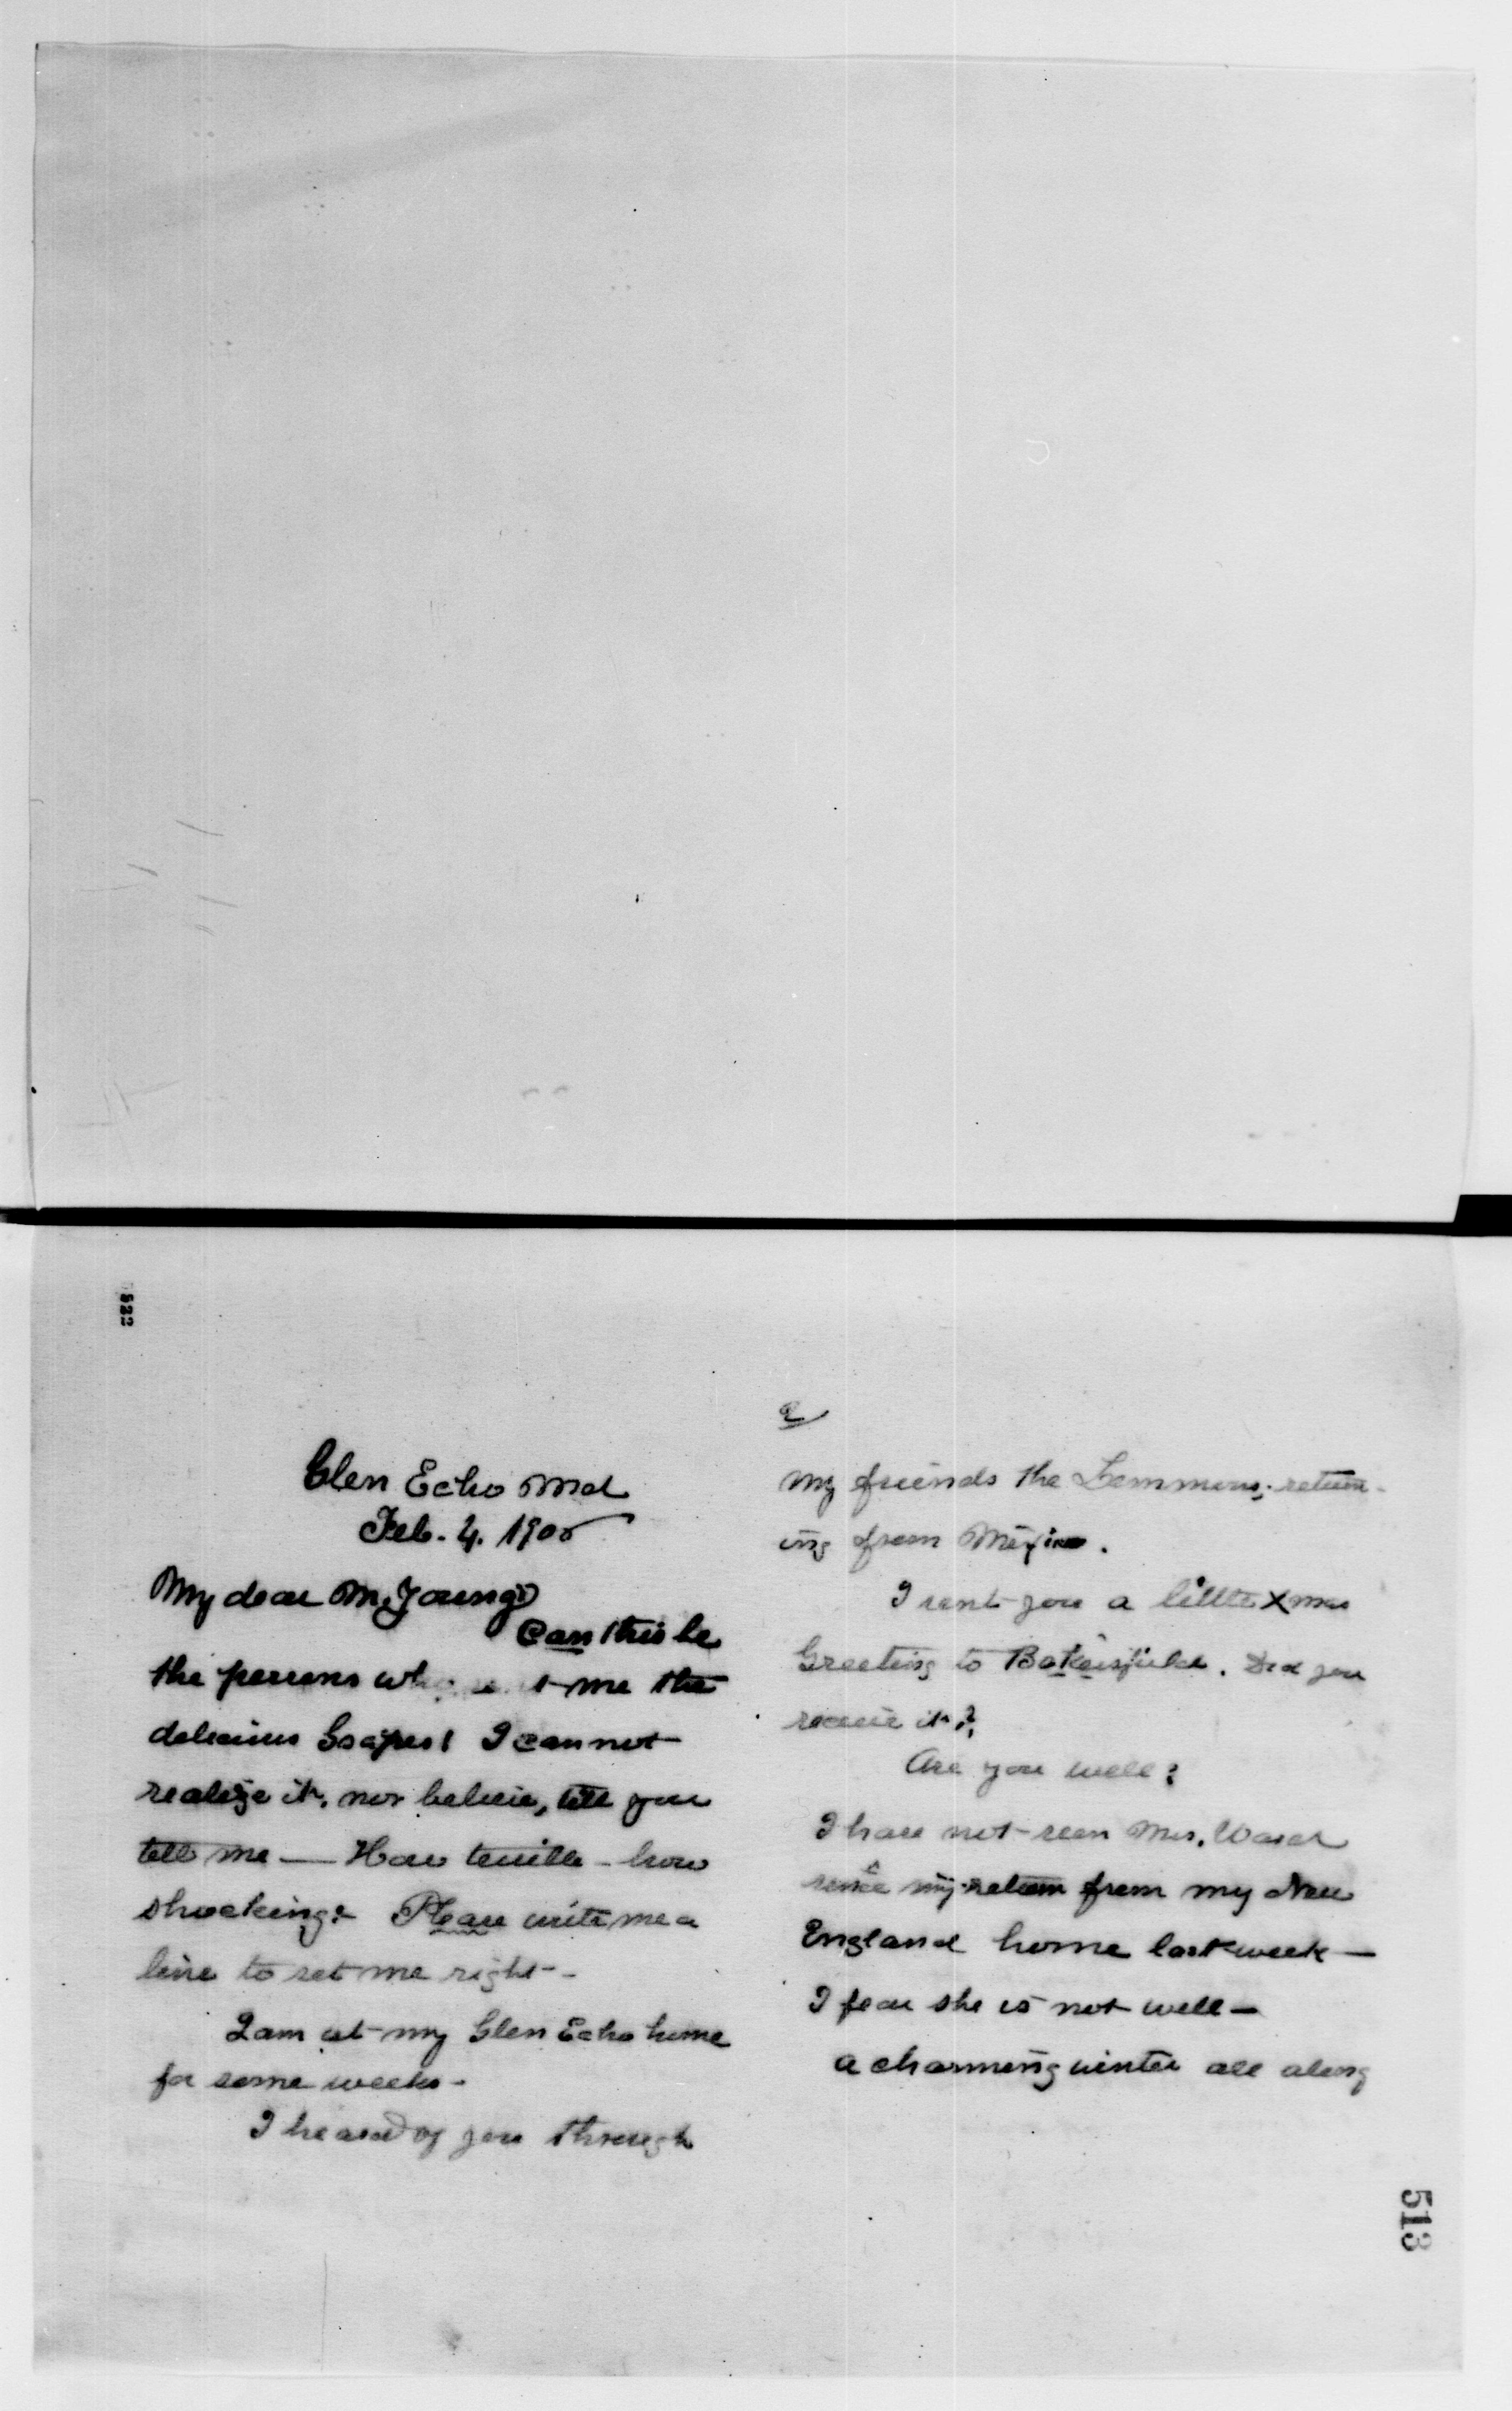 522
Glen Echo Md
Feb. 4. 1905
My dear Mr. Young
Can this be
the persons who sent me the
delicious Grapes! I cannot
realize it, nor believe, till you
tell me — How terrible - how
shocking! Please write me a
line to set me right -
I am at my Glen Echo home
for some weeks -
I heard of you through
2
my friends the Lemmons, return-
ing from Mexico.
I sent you a little Xmas
Greeting to Bakersfield. Did you
receive it?
Are you well?
I have not seen Mrs. Ward
since my return from my New
England home last week —
I fear she is not well —
a charming winter all along
513